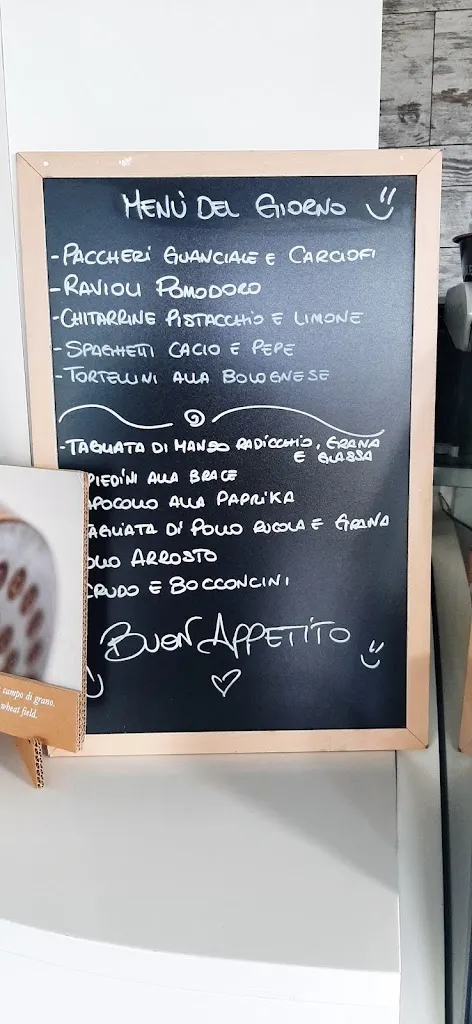 MENÙ DEL GIORNO
-PACCHERI GUANCIALE E CARCIOFI
-RAVIOLI POMODORO
-CHITARRINE PISTACCHIO E LIMONE
-SPAGHETTI CACIO E PEPE
-TORTELLINI ALLA BOLOGNESE
-TAGLIATA DI MANZO RADICCHIO, GRANA
E GLASSA
PIEDINI ALLA BRACE
APOCOLLO ALLA PAPRIKA
TAGLIATA DI POLLO RUCOLA E GRANA
OLLO ARROSTO
CRUDO E BOCCONCINI
BUON APPETITO
campo di grano.
wheat field.